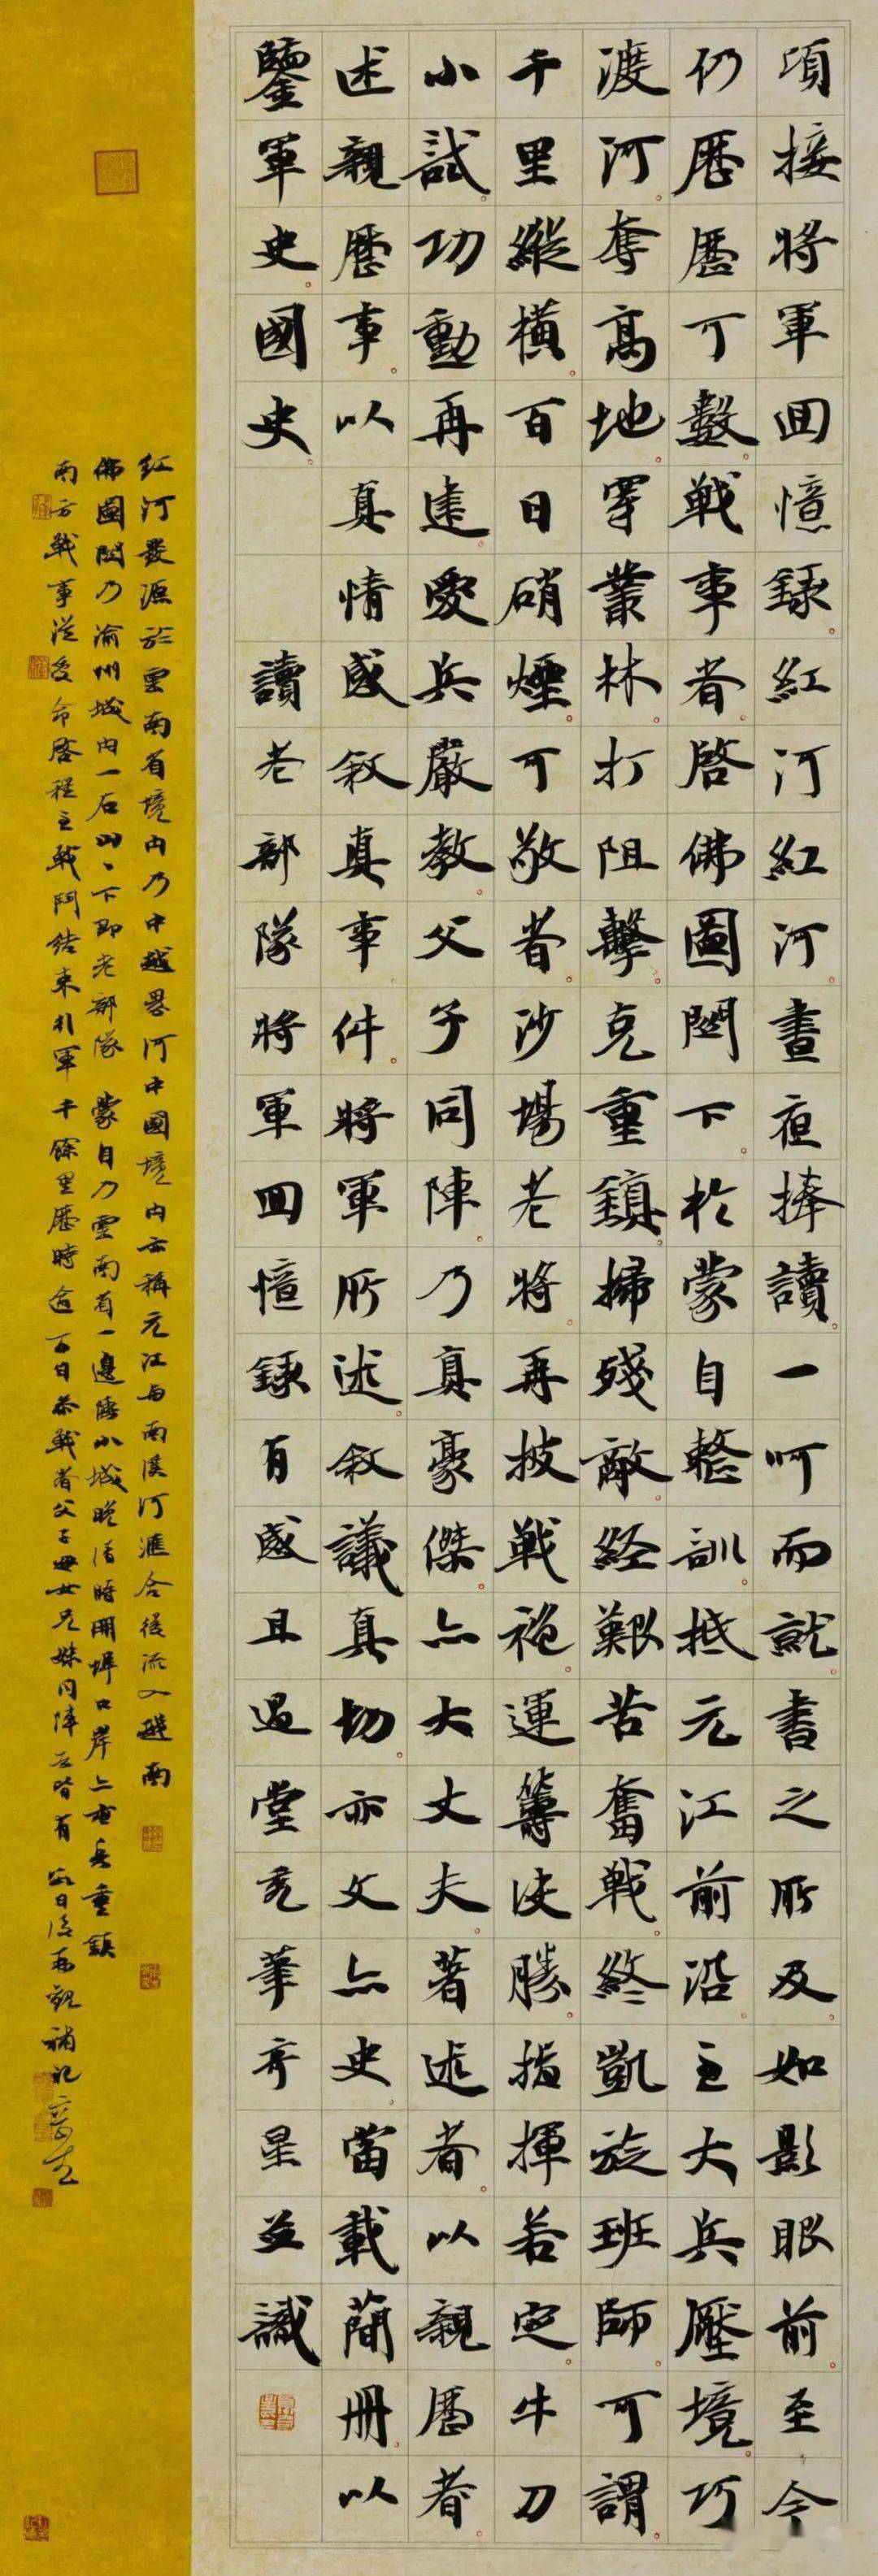 頃接將軍回憶錄紅河紅河晝夜捧讀一呵而就書之所及如影眼前至今
仍歷歷可數戰事者啓佛圖關下於蒙自整訓抵元江前沿主大兵壓境巧
渡河奪高地穿叢林打阻擊克重鎮掃殘敵經艱苦奮戰終凱旋班師可謂
千里縱橫百日硝煙可敬者沙場老將再披戰袍運籌決勝指揮若定牛刀
小試功勳再建愛兵嚴教父子同陣乃真豪傑亦大丈夫著述者以親歷者
述親歷事以真情感敘真事件將軍所述敘議真切亦文亦史當載簡冊以
鑒軍史國史
讀老部隊將軍回憶錄有感且過堂亮筆齊星並識
紅河發源於雲南省境內乃中越界河中國境內亦稱元江與南溪河滙合後流入越南
佛圖關乃渝州城內一石山山下即老部隊 蒙自乃雲南省一邊陲小城晚清時開埠口岸亦屯兵重鎮
南方戰事從受命啓程至戰鬥結束行軍千餘里歷時逾百日參戰者父子母女兄妹同陣者皆有 數日後再觀補記